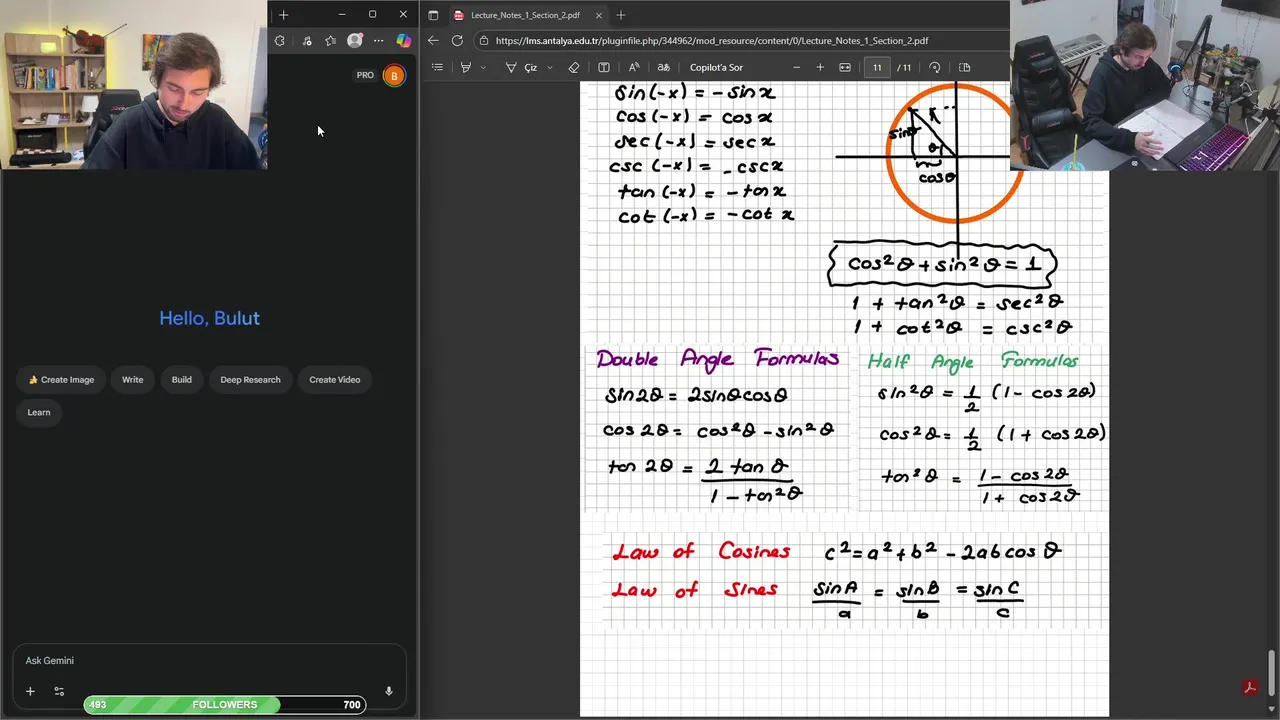 PRO
B
Hello, Bulut
Create Image
Write
Build
Deep Research
Create Video
Learn
Ask Gemini
493 FOLLOWERS 700
Lecture_Notes_1_Section_2.pdf
https://lms.antalya.edu.tr/pluginfile.php/344962/mod_resource/content/0/Lecture_Notes_1_Section_2.pdf
Çiz
aあ
Copilot'a Sor
11 / 11
sin(-x) = -sinx
cos(-x) = cosx
sec(-x) = secx
csc(-x) = -cscx
tan(-x) = -tanx
cot(-x) = -cot x
sinθ
θ
cosθ
cos²θ + sin²θ = 1
1 + tan²θ = sec²θ
1 + cot²θ = csc²θ
Double Angle Formulas
sin2θ = 2sinθcosθ
cos2θ = cos²θ - sin²θ
tan 2θ = 2 tan θ / 1 - tan²θ
Half Angle Formulas
sin²θ = 1/2 (1 - cos2θ)
cos²θ = 1/2 (1 + cos2θ)
tan²θ = 1 - cos2θ / 1 + cos2θ
Law of Cosines c² = a² + b² - 2ab cos θ
Law of Sines sinA/a = sinB/b = sinC/c